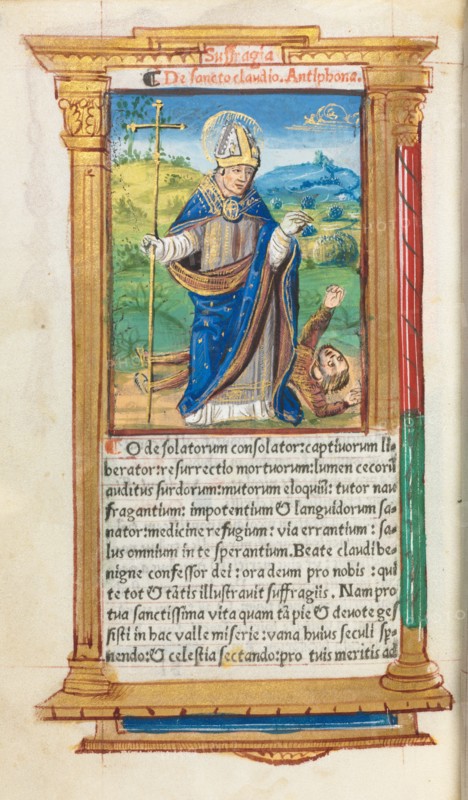 Suffragia
De sancto claudio. Antiphona.
O desolatorum consolator: captiuorum li-
berator: resurrectio mortuorum: lumen cecorū
auditus surdorum: mutorum eloquiū: tutor nau
fragantium: impotentium & languidorum sa-
nator: medicine refugium: via errantium: sa-
lus omnium in te sperantium. Beate claudi be-
nigne confessor dei: ora deum pro nobis: qui
te tot & tātis illustrauit suffragiis. Nam pro
tua sanctissima vita quam tā pie & deuote ges
sisti in hac valle miserie: vana huius seculi sp-
nendo: & celestia sectando: pro tuis meritis ad